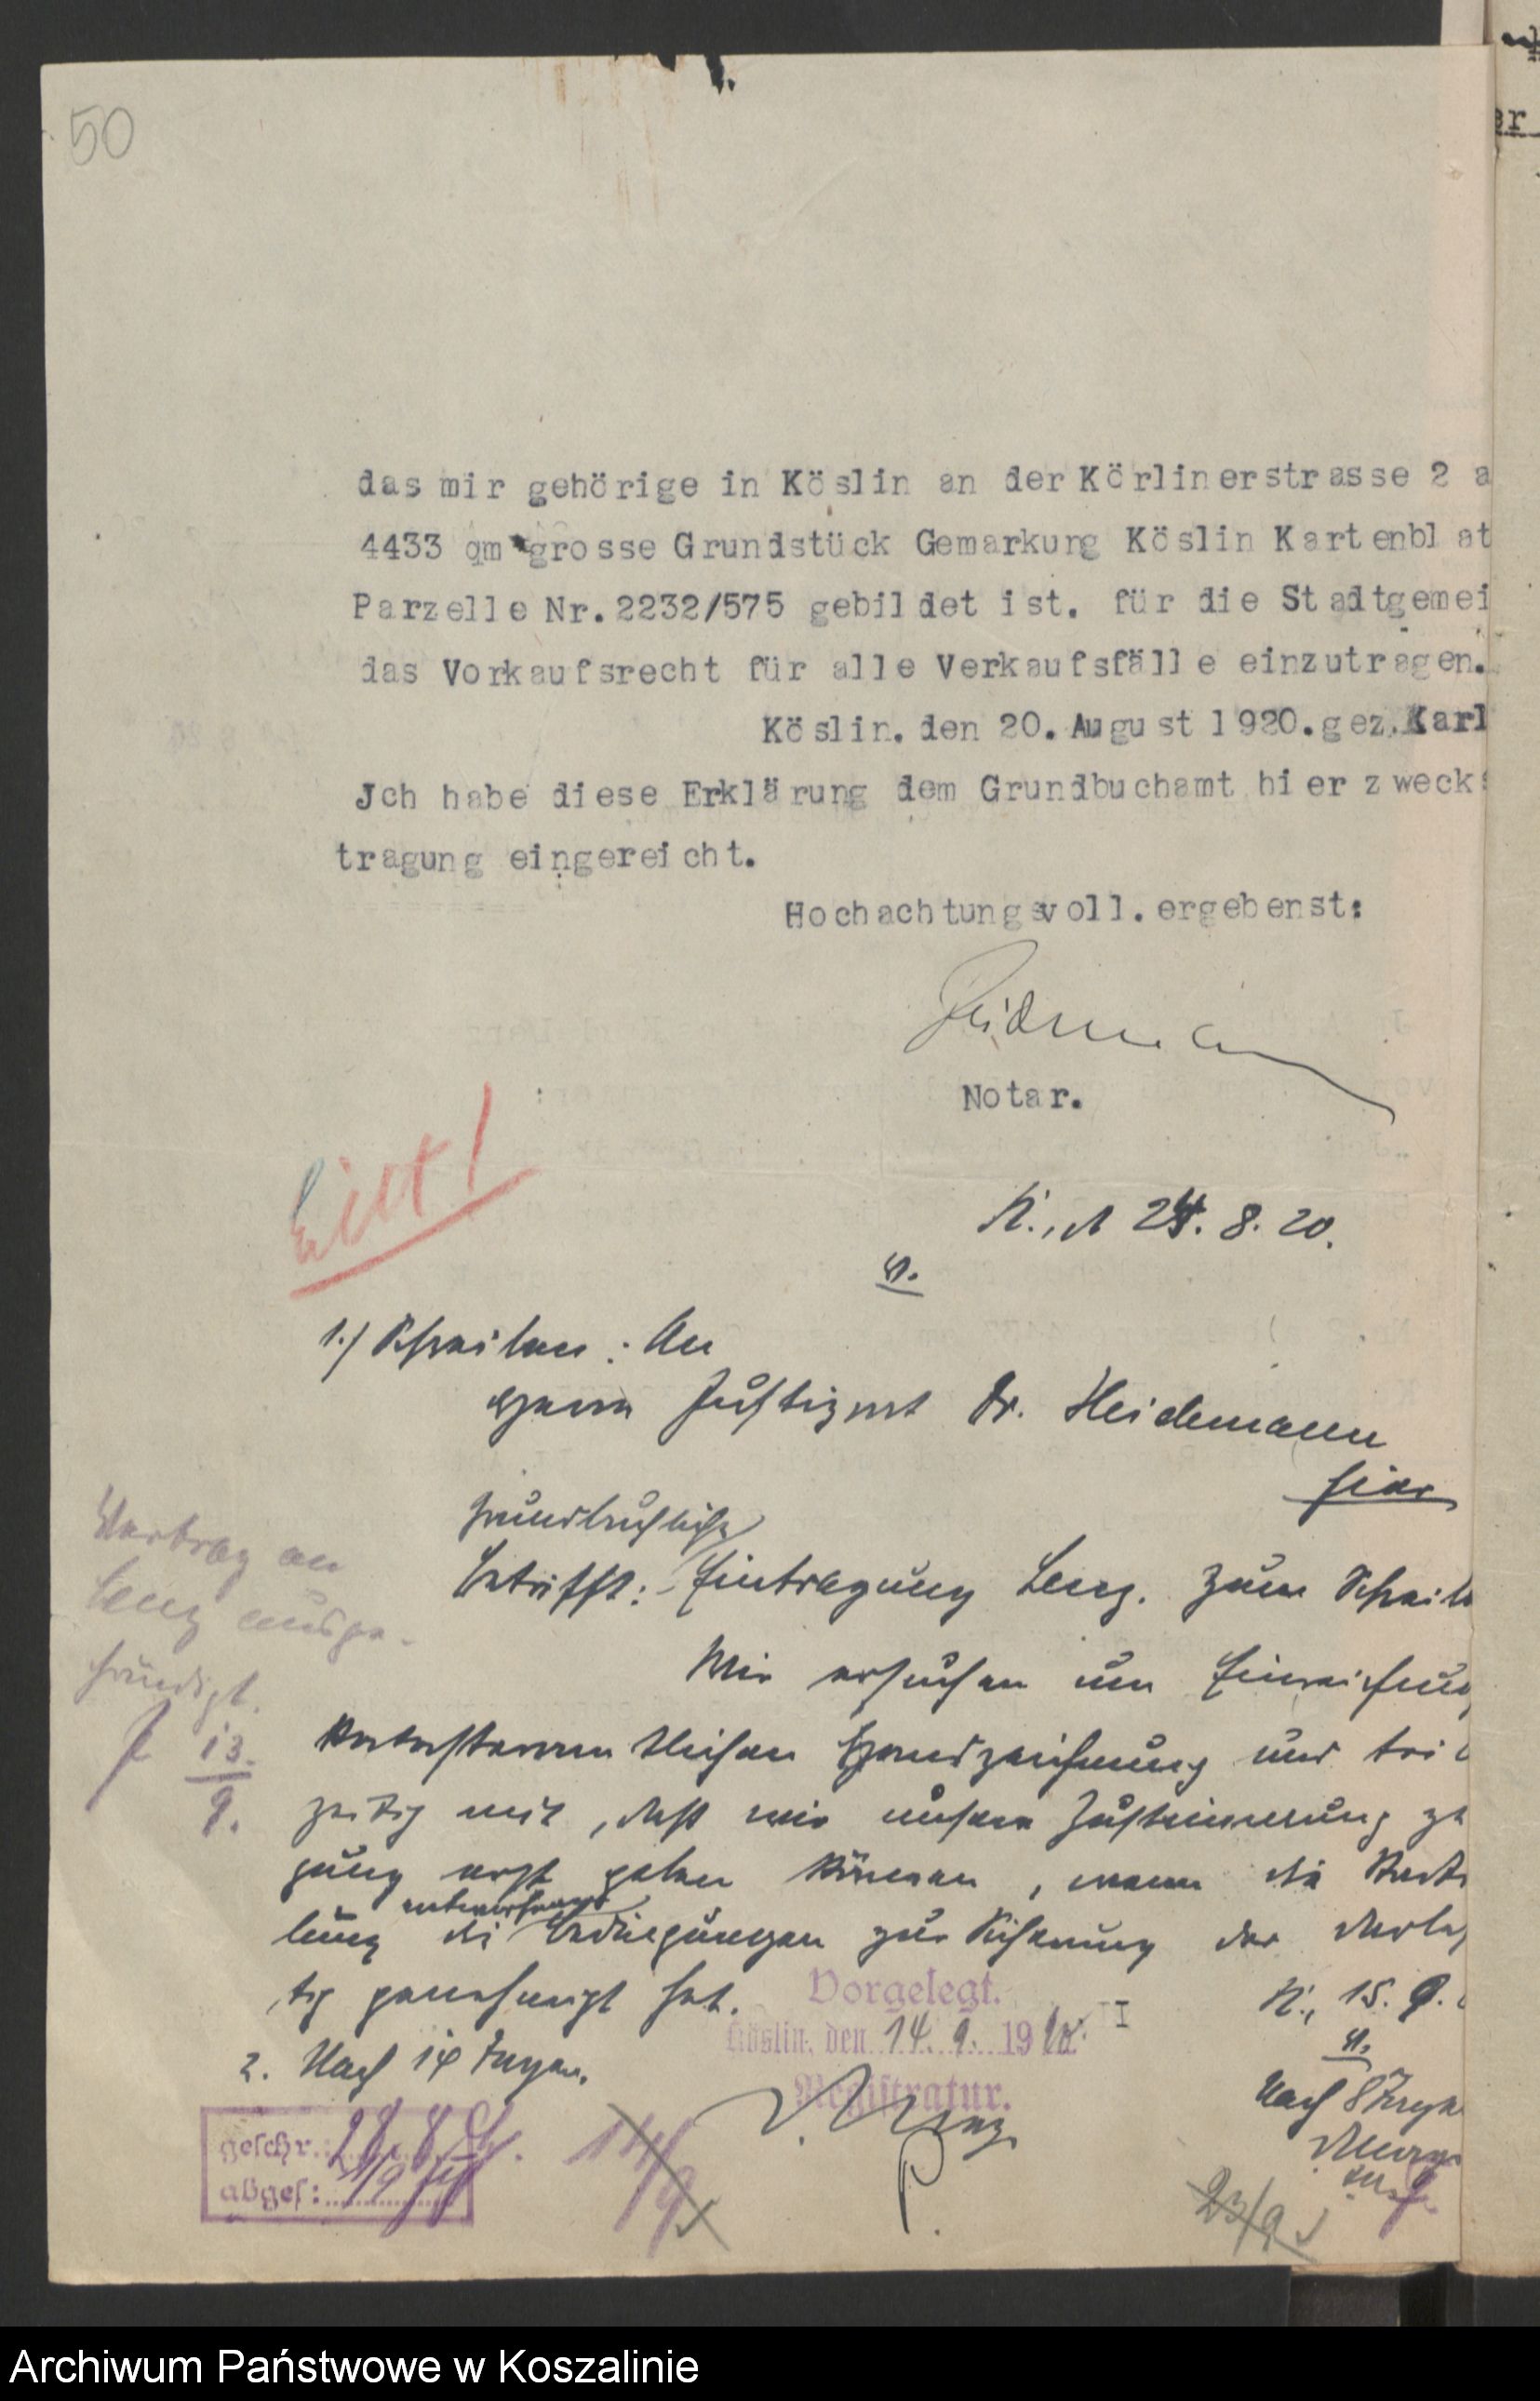 50
das mir gehörige in Köslin an der Körlinerstrasse 2 a
4433 qm grosse Grundstück Gemarkung Köslin Kartenblat
Parzelle Nr.2232/575 gebildet ist. für die Stadtgemei
das Vorkaufsrecht für alle Verkaufsfälle einzutragen.
Köslin. den 20. August 1920.gez.Karl
Jch habe diese Erklärung dem Grundbuchamt hier zwecks
tragung eingereicht.
Hochachtungsvoll.ergebenst:
Heidemann
Notar.
Eilt!
K., d 24. 8. 20.
1.) Schreiben: An
Herrn Justizrat Dr. Heidemann
hier
grundbuchliche
Betrifft: Eintragung Lenz. Zum Schreib
Wir ersuchen um Einreichung
Katasteramtlichen Handzeichnung und
zeitig mit, daß wir unsere Zustimmung z
gung erst geben können, wenn die
entworfenen
lung die Bedingungen zur Sicherung der
tig genehmigt hat.
2. Nach 14 Tagen.
Vertrag an
Lenz ausge-
händigt.
13.
9.
Vorgelegt.
Köslin, den 14. 9. 19
Registratur.
I
K., 15. 9.
Nach 8 Tage
geschr.: 28. 8.
abges: 1/9
14/9
23/9
er
Archiwum Państwowe w Koszalinie